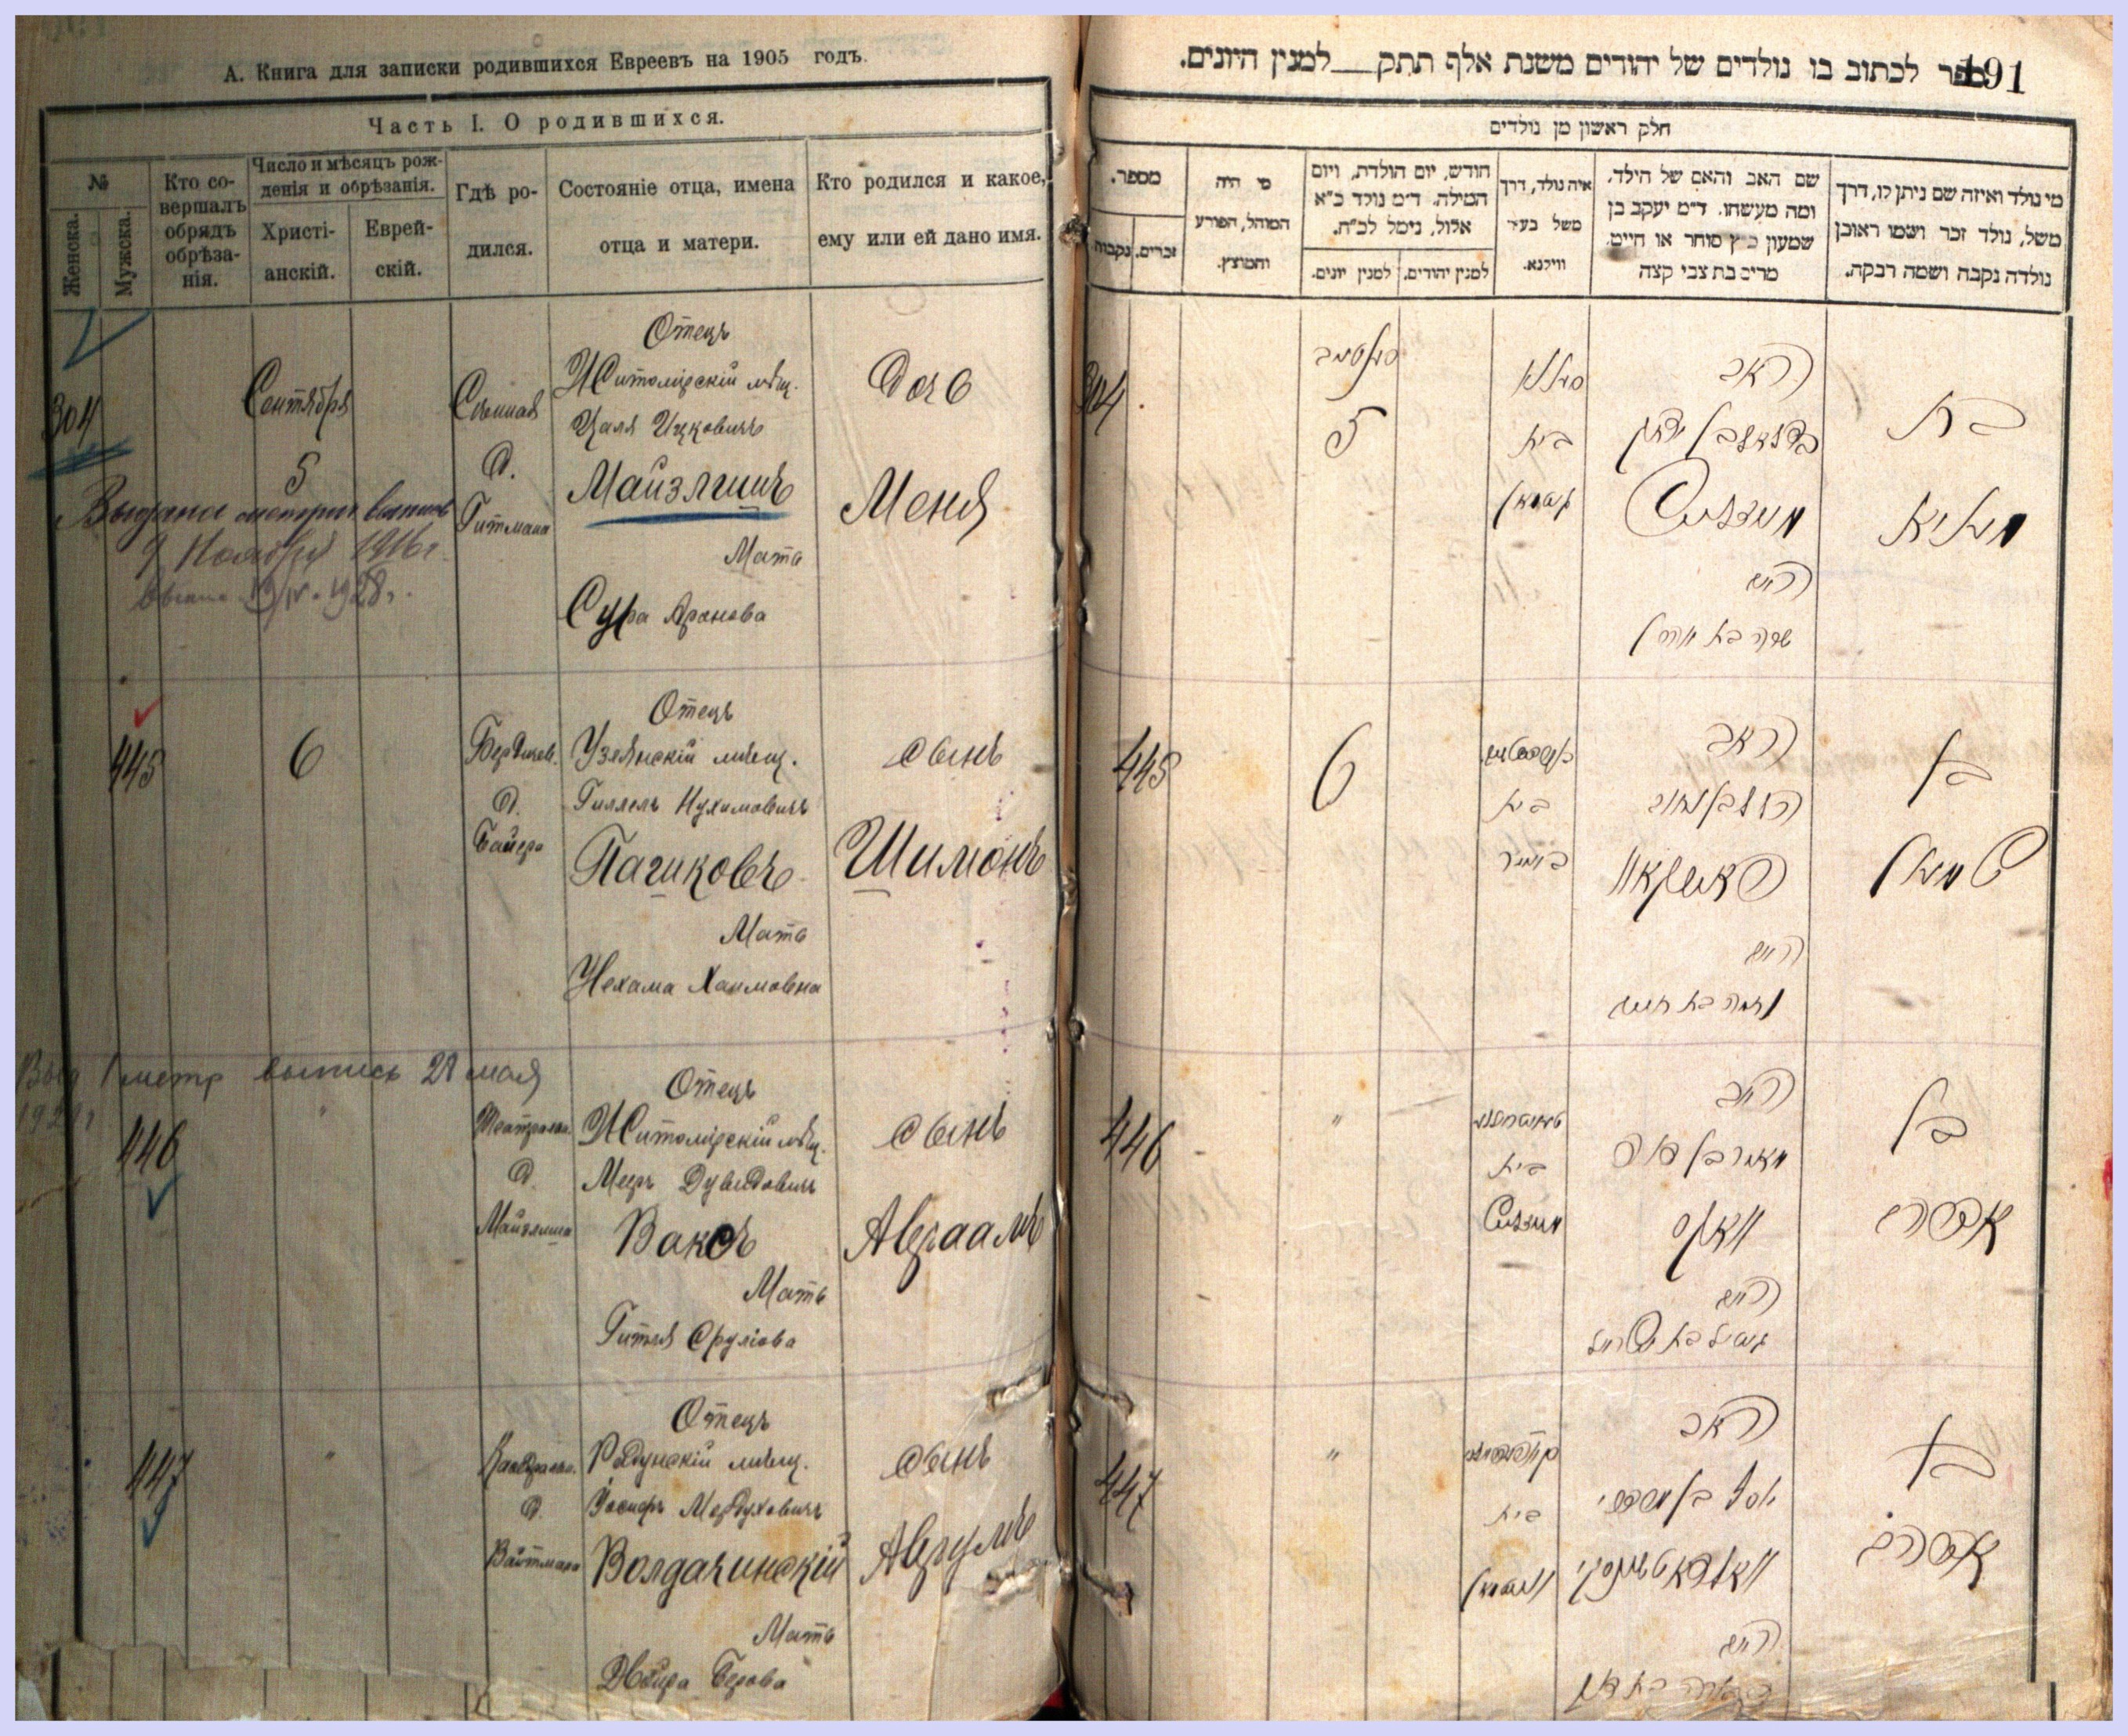 А. Книга для записки родившихся Евреевъ на 1905 годъ.
Часть I. О родившихся.
№
Женска.
Мужска.
Кто со-
вершалъ
обрядъ
обрѣза-
нія.
Число и мѣсяцъ рож-
денія и обрѣзанія.
Христі-
анскій.
Еврей-
скій.
Гдѣ ро-
дился.
Состояніе отца, имена
отца и матери.
Кто родился и какое,
ему или ей дано имя.
304
Сентября
5
Сѣнная
д.
Гитмана
Отецъ
Житомірскій мѣщ.
Цаля Ицковичъ
Майзлишъ
Мать
Сура Аронова
Дочь
Меня
Выдана метрич выпись
9 Ноября 1916 г.
1928 г.
445
6
Бердичев.
д.
Байера
Отецъ
Узлянскій мѣщ.
Гиллель Нухимовичъ
Пашковъ
Мать
Нехама Хаимовна
сынъ
Шимонъ
метр выпись 28 мая
446
"
Театральн.
д.
Майзлиша
Отецъ
Житомірскій мѣщ.
Мееръ Дувидовичъ
Ваксъ
Мать
Гитля Срулiова
сынъ
Авраамъ
447
"
Каѳедральн.
д.
Вайтмана
Отецъ
Радунскій мѣщ.
Іосифъ Мордуховичъ
Волдачинскій
Мать
Двойра Берова
сынъ
Аврумъ
191
ספר לכתוב בו נולדים של יהודים משנת אלף תתק__למנין היונים.
חלק ראשון מן נולדים
מספר.
זכרים.
נקבות
מי היה
המוהל, הפורע
והמוצץ.
חודש, יום הולדת, ויום
המילה. ד"מ נולד כ"א
אלול, נימל לכ"ח.
למנין יהודים.
למנין יונים.
איה נולד, דרך
משל בעיר
ווילנא.
שם האב והאם של הילד,
ומה מעשהו. ד"מ יעקב בן
שמעון כ"ץ סוחר או חייט.
מרים בת צבי קצה
מי נולד ואיזה שם ניתן לו, דרך
משל, נולד זכר ושמו ראובן
נולדה נקבה ושמה רבקה.
304
5
בית
האב
בצלאל בן יצחק
מייזליש
האם
שרה בת אהרן
בת
מעניא
445
6
בית
האב
הלל בן נחום
פאשקאוו
האם
נחמה בת חיים
בן
שמעון
446
"
בית
מייזליש
האב
מאיר בן דוד
וואקס
האם
גיטיל בת ישראל
בן
אברהם
447
"
בית
האב
יוסף בן מרדכי
האם
בן
אברהם